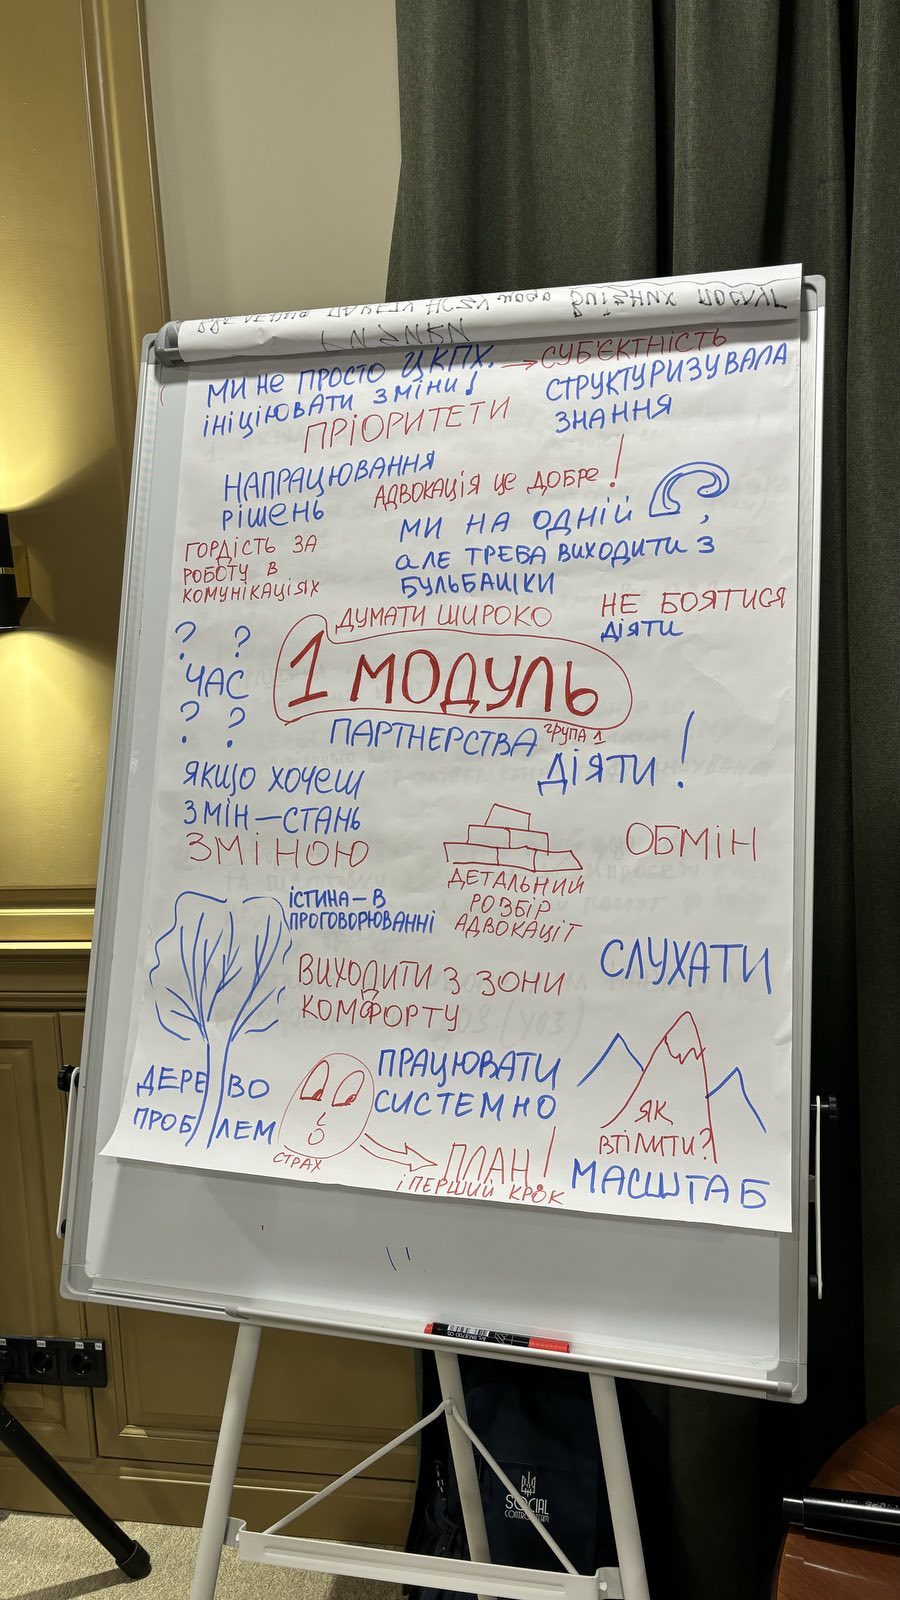 МИ НЕ ПРОСТО ЦКПХ. → СУБ'ЄКТНІСТЬ
ІНІЦІЮВАТИ ЗМІНИ!
СТРУКТУРИЗУВАЛА
ЗНАННЯ
ПРІОРИТЕТИ
НАПРАЦЮВАННЯ
РІШЕНЬ
АДВОКАЦІЯ ЦЕ ДОБРЕ!
МИ НА ОДНІЙ ,
аЛЕ ТРЕБА ВИХОДИТИ З
БУЛЬБАШКИ
ГОРДІСТЬ ЗА
РОБОТУ В
КОМУНІКАЦІЯХ
ДУМАТИ ШИРОКО
НЕ БОЯТИСЯ
ДІЯТИ
? ?
ЧАС
? ?
1 МОДУЛЬ
ГРУПА 1
ПАРТНЕРСТВА
ДІЯТИ!
ЯКЩО ХОЧЕШ
ЗМІН—СТАНЬ
ЗМІНОЮ
ДЕТАЛЬНИЙ
РОЗБІР
АДВОКАЦІЇ
ОБМІН
ІСТИНА—В
ПРОГОВОРЮВАННІ
СЛУХАТИ
ВИХОДИТИ З ЗОНИ
КОМФОРТУ
ДЕРЕВО
ПРОБЛЕМ
СТРАХ
ПРАЦЮВАТИ
СИСТЕМНО
ПЛАН!
і ПЕРШИЙ КРОК
ЯК
ВТІЛИТИ?
МАСШТАБ
SOCIAL